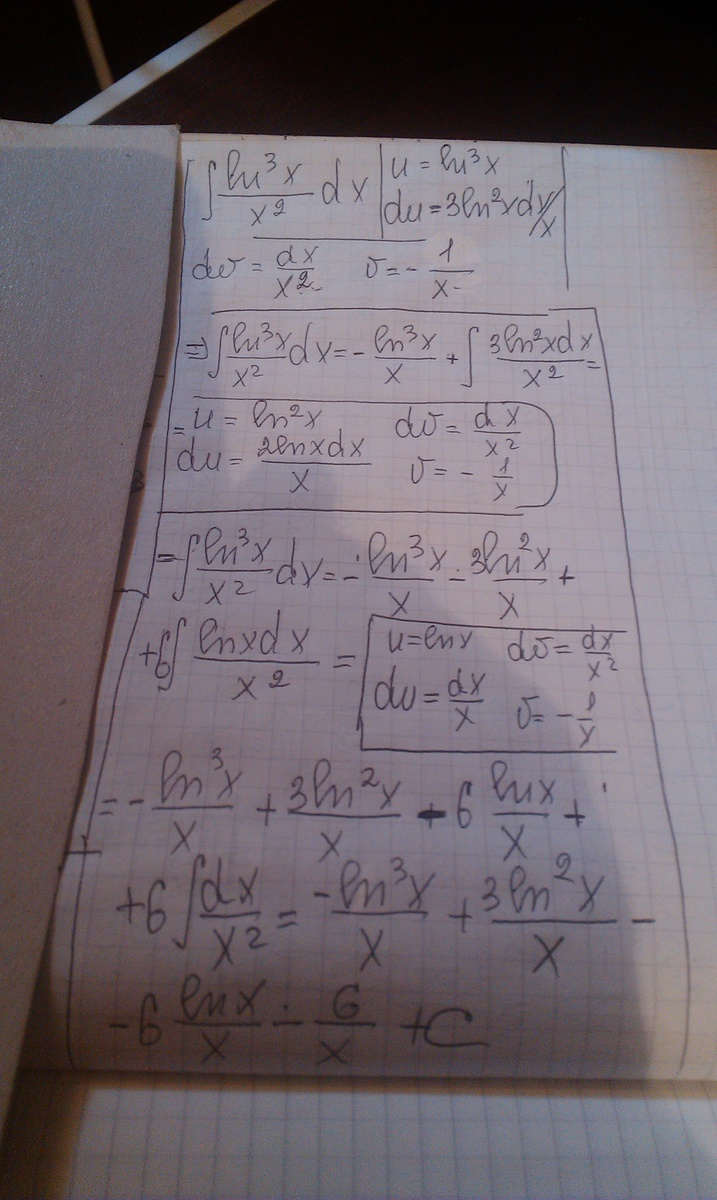 ∫ ln³x / x² dx | u = ln³x
du = 3ln²x dx/x |
dv = dx/x² v = - 1/x
⇒ ∫ ln³x/x² dx = - ln³x/x + ∫ 3ln²xdx/x² =
= u = ln²x dv = dx/x²
du = 2lnxdx/x v = - 1/x
= ∫ ln³x/x² dx = - ln³x/x - 3ln²x/x +
+6∫ lnxdx/x² = u = lnx dv = dx/x²
du = dx/x v = - 1/x
= - ln³x/x + 3ln²x/x - 6 lnx/x +
+6 ∫ dx/x² = -ln³x/x + 3ln²x/x -
-6 lnx/x - 6/x + C